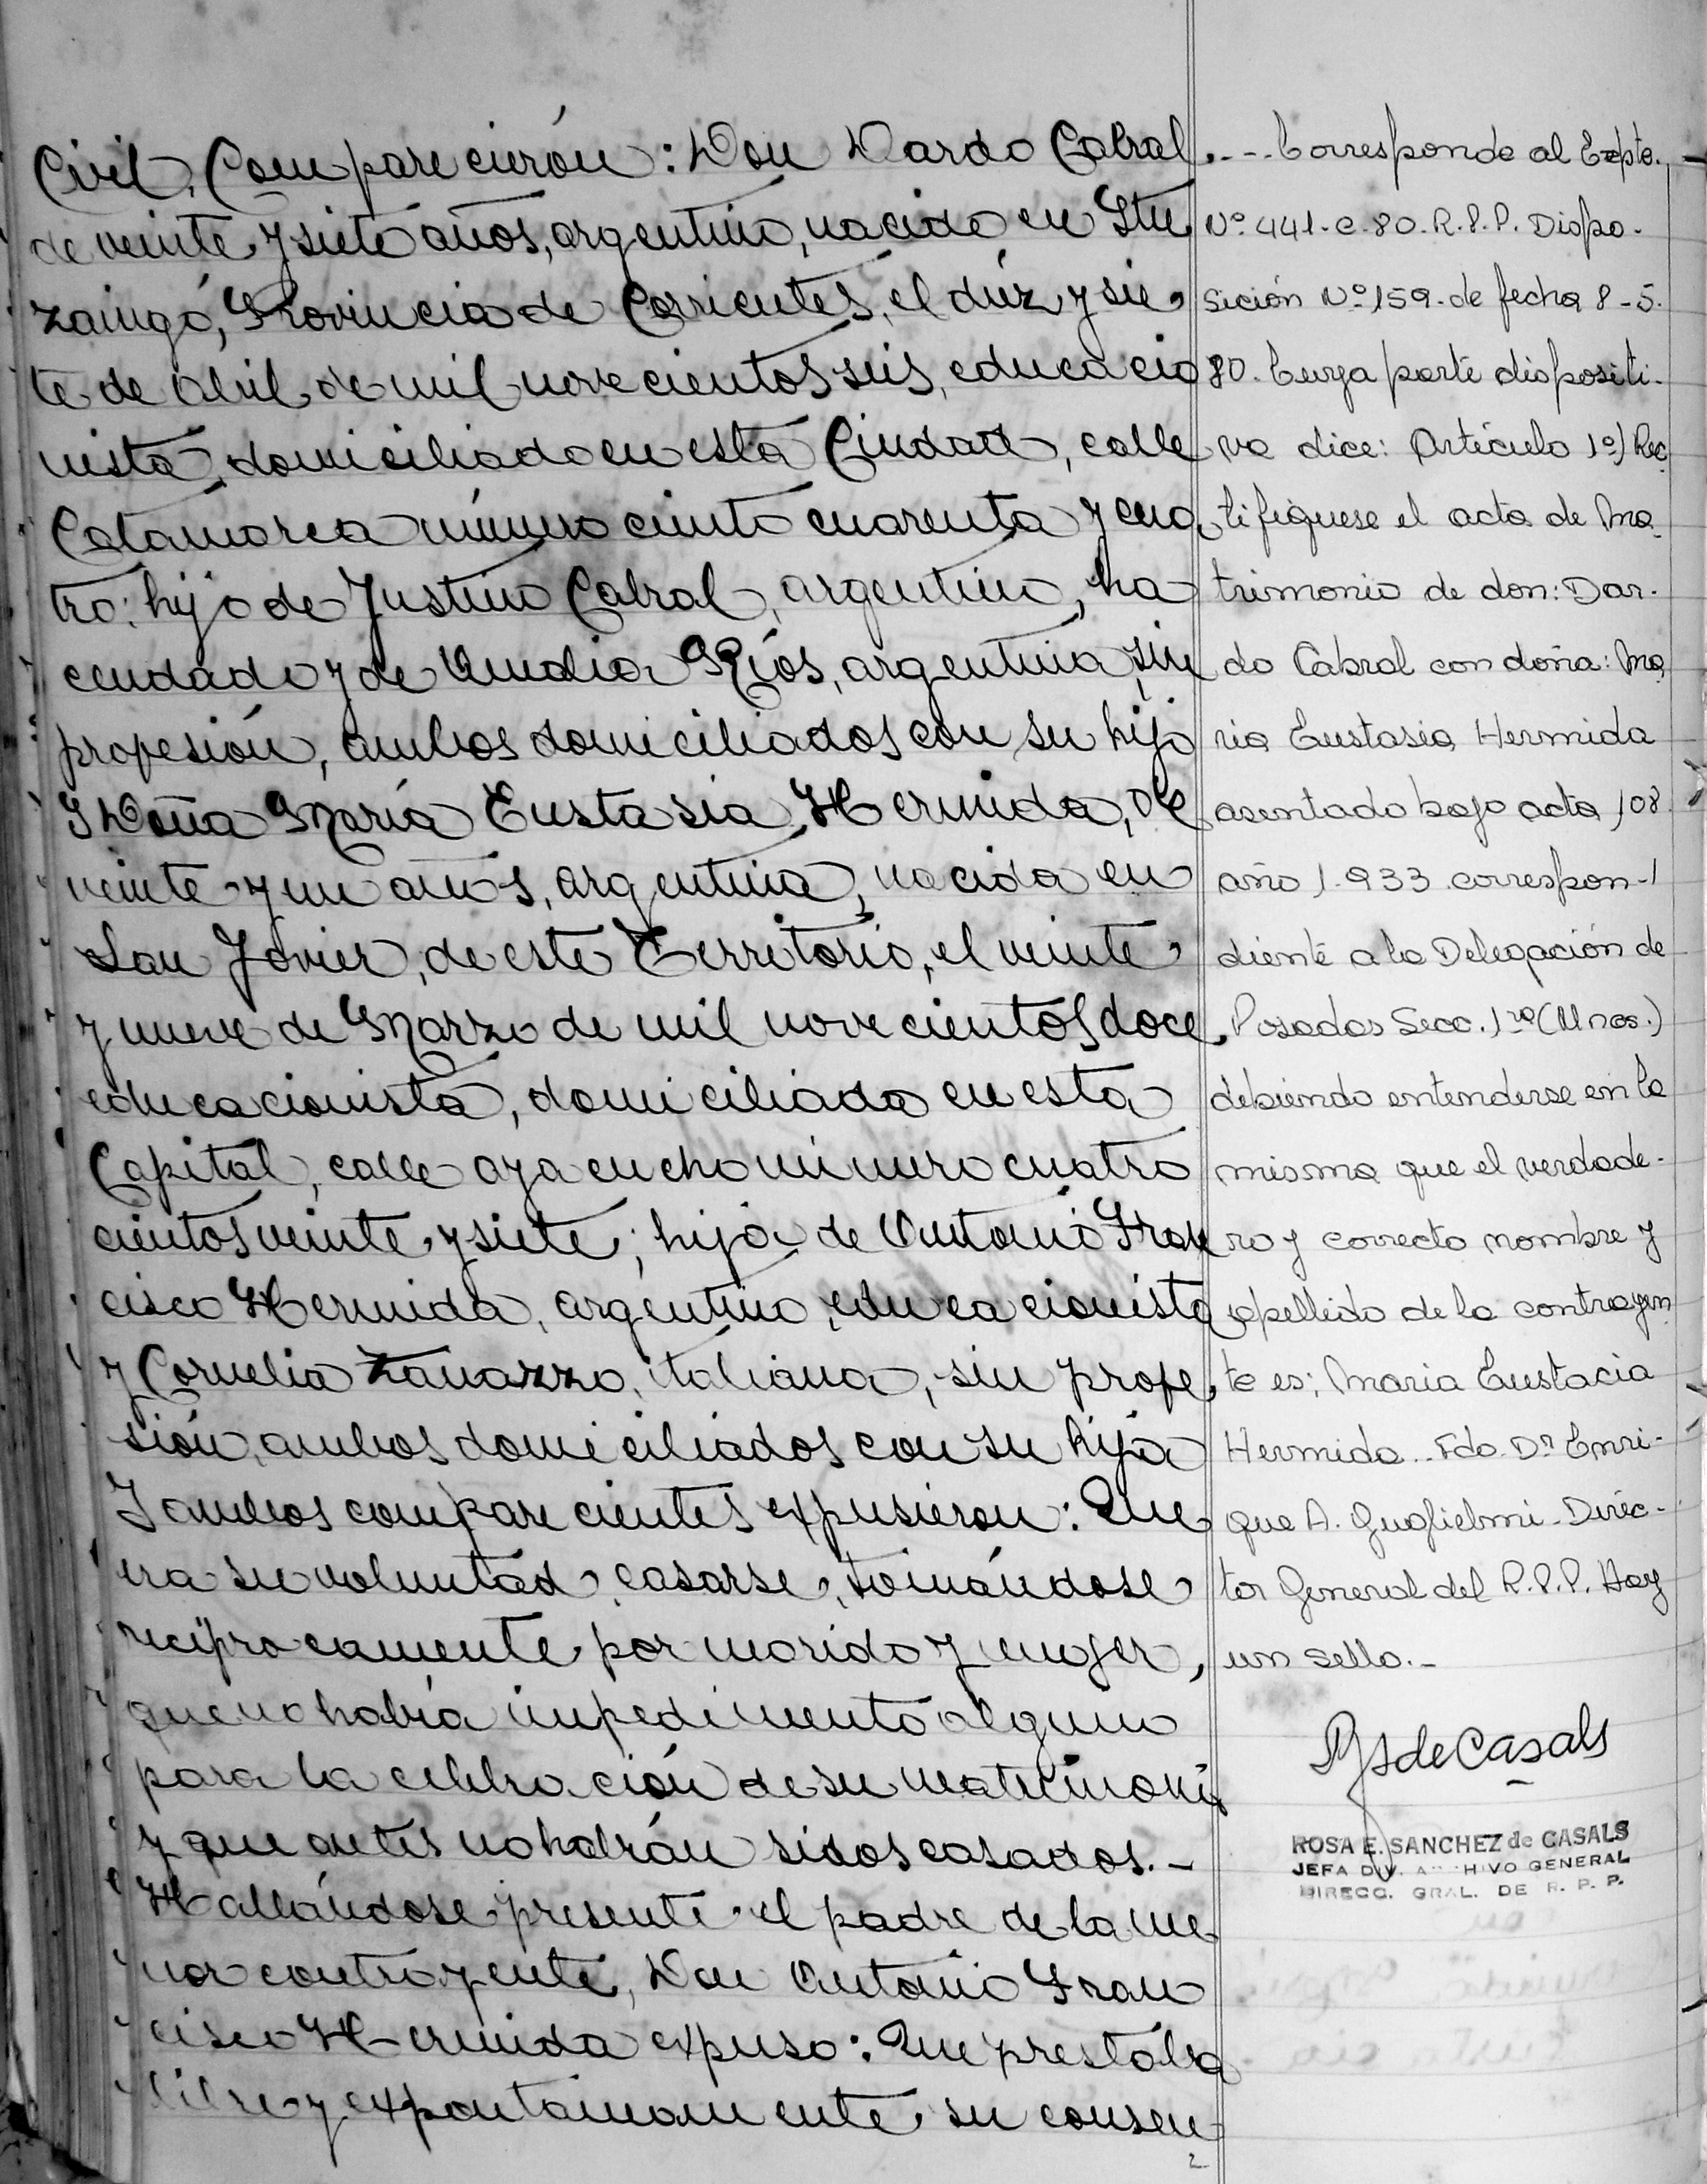 Civil, Comparecierón: Don Dardo Cabral,
de veinte y siete años, argentino, nacido en Itu
zaingó, Provincia de Corrientes, el diéz y sie-
te de Abril de mil novecientos seis, educacio
nista, domiciliado en esta Ciudad, calle
Catamarca número ciento cuarenta y cua
tro: hijo de Justino Cabral, argentino, ha
cendado y de Amdia Ríos, argentina, sin
profesión, ambos domiciliados con su hijo
Y Doña María Eustasia Hermida, de
veinte y un años, argentina, nacida en
San Javier, de este Territorio, el veinte
y nueve de Marzo de mil novecientos doce,
educacionista, domiciliada en esta
Capital, calle Ayacucho número cuatro
cientos veinte y siete; hija de Antonio Fran
cisco Hermida, argentino, educacionista
y Cornelia Zanazzo, italiana, sin profe
sión, ambos domiciliados con su hija
Y ambos comparecientes expusieron: Que
era su voluntad, casarse, tomándose
recíprocamente por marido y mujer,
que no había impedimento alguno
para la celebración de su matrimonio
y que antes no habrán sidos casados.-
Hallándose presente el padre de la me
nor contrayente, Don Antonio Fran
cisco Hermida expuso: Que prestaba
libre y expontáineamente su consen
.--- Corresponde al Expte.
Nº 441-C-80. R.P.P. Dispo-
sición Nº 159- de fecha 8-5-
80. Cuya parte dispositi-
va dice: Artículo 1º) Rec
tifíquese el acta de Ma
trimonio de don: Dar-
do Cabral con doña: Ma
ria Eustasia Hermida
asentado bajo acta 108
año 1.933 correspon-
diente a la Delegación de
Posadas Secc. 1ra (Mnes.)
debiendo entenderse en la
misma que el verdade-
ro y correcto nombre y
apellido de la contrayen
te es; Maria Eustacia
Hermida.. Fdo. Dr Enri-
que A. Guglielmi- Direc-
tor General del R.P.P. Hay
un sello.-
RSdeCasals
ROSA E. SANCHEZ de CASALS
JEFA DIV. ARCHIVO GENERAL
DIRECC. GRAL. DE R. P. P.